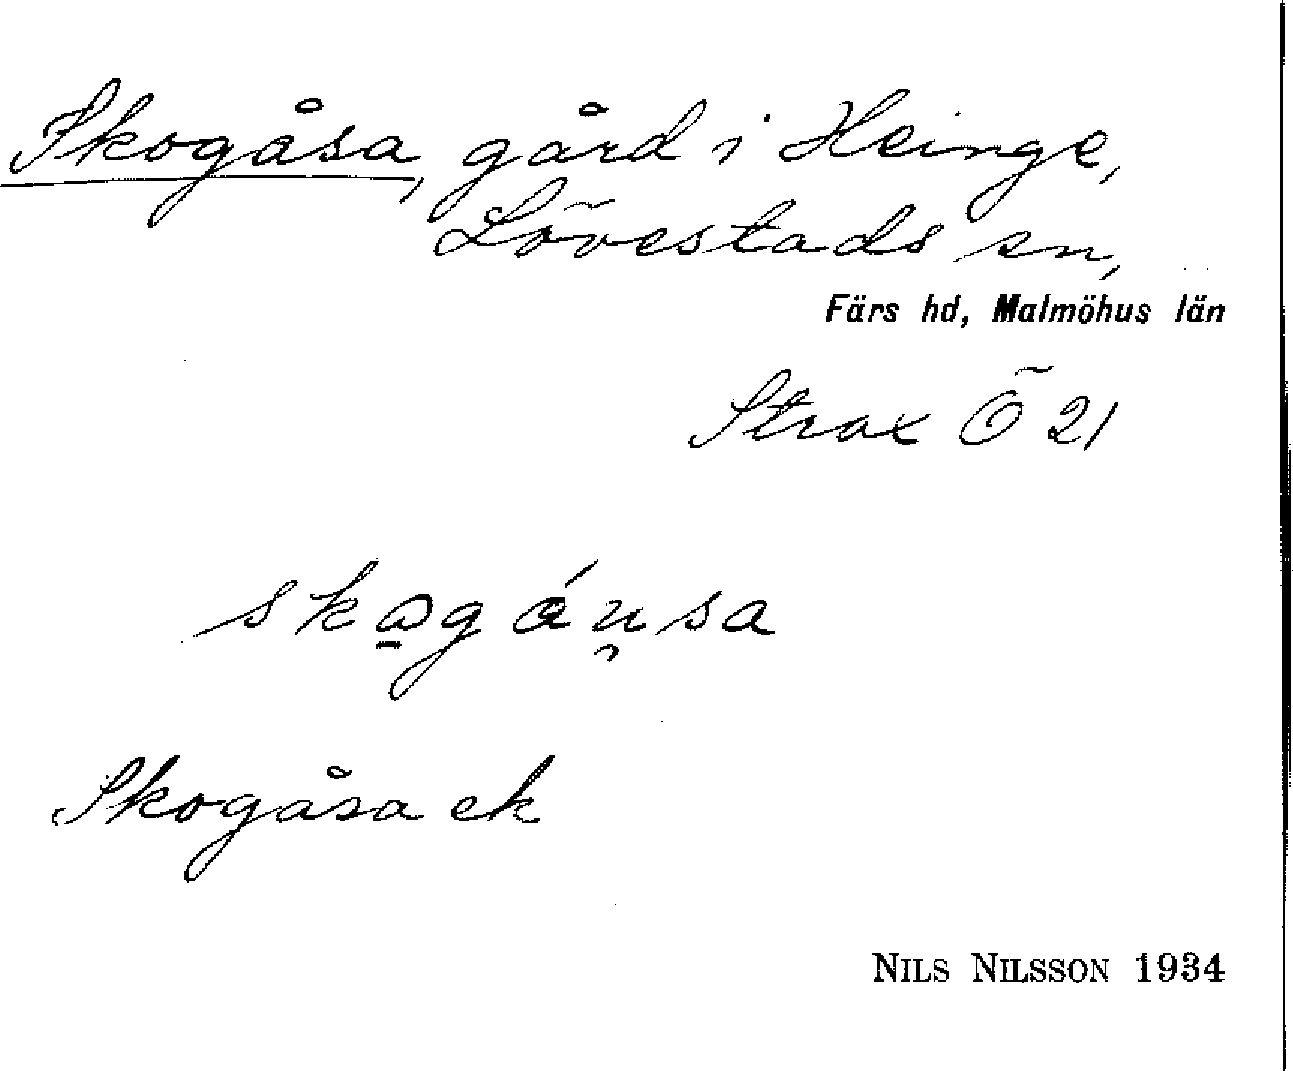 Skogåsa, gård i Heinge,
Lövestads sn,
Färs hd, Malmöhus län
Strax Ö 21
Skogåsa ek
NILS NILSSON 1934